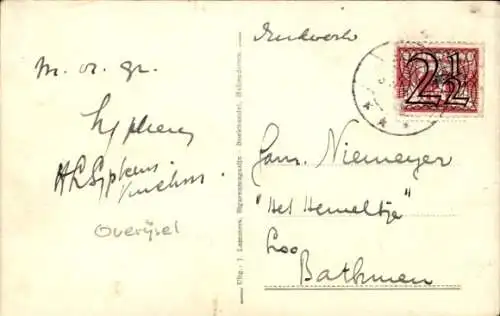 m. vr. gr.
Sypkens
H L Sypkens
Overijsel
Uitg.: J. Lammers, Sigarenmagazijn - Boekhandel,
Drukwerk
2½
Fam. Niemeyer
"Het Hemeltje"
Loo
Bathmen